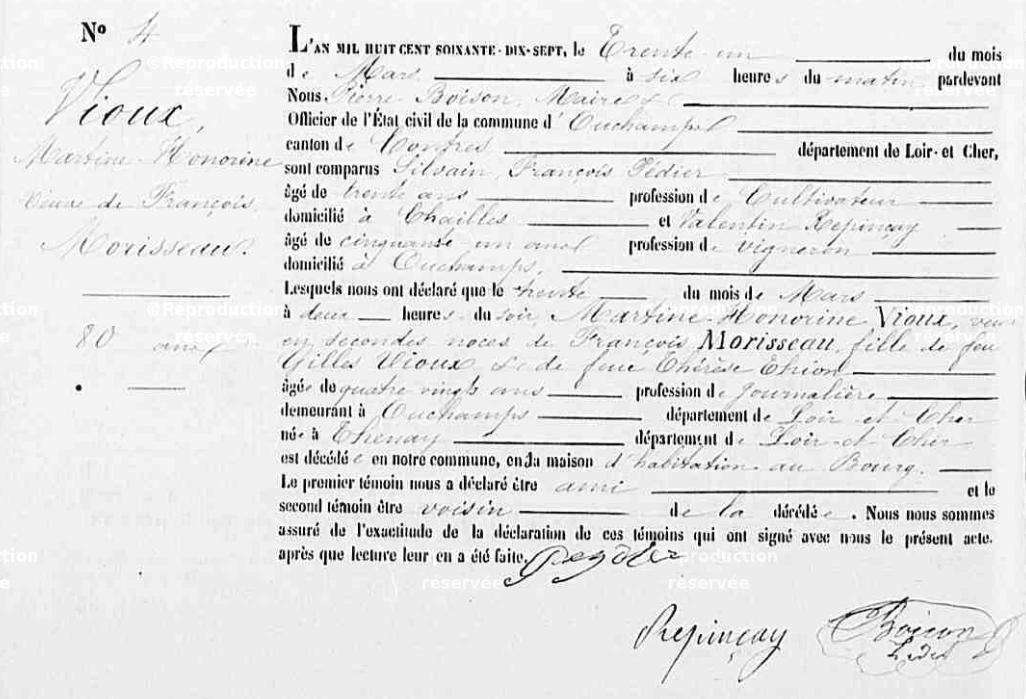 Nº 4
Vioux,
Martine Honorine
Veuve de François
Morisseau.
80 ans
L'AN MIL HUIT CENT SOIXANTE-DIX-SEPT, le Trente un du mois
de Mars à six heures du matin pardevant
Nous Pierre Boison, Maire &
Officier de l'État civil de la commune d'Ouchamps
canton de Contres département de Loir-et-Cher,
sont comparus Silvain François Pédier
âgé de trente ans profession de Cultivateur
domicilié à Chailles et Valentin Repinçay
âgé de cinquante-un ans profession de vigneron
domicilié à Ouchamps.
Lesquels nous ont déclaré que le trente du mois de Mars
à deux heures du soir, Martine Honorine Vioux, veuve
en secondes noces de François Morisseau, fille de feu
Gilles Vioux, & de feue Thérèse
âgée de quatre vingts ans profession de Journalière
demeurant à Ouchamps département de Loir et Cher
née à Thenay département de Loir-et-Cher
est décédée en notre commune, en la maison d'habitation au Bourg.
Le premier témoin nous a déclaré être ami et le
second témoin être voisin de la décédée. Nous nous sommes
assuré de l'exactitude de la déclaration de ces témoins qui ont signé avec nous le présent acte.
après que lecture leur en a été faite.
Repinçay
Boison
©Reproduction
réservée